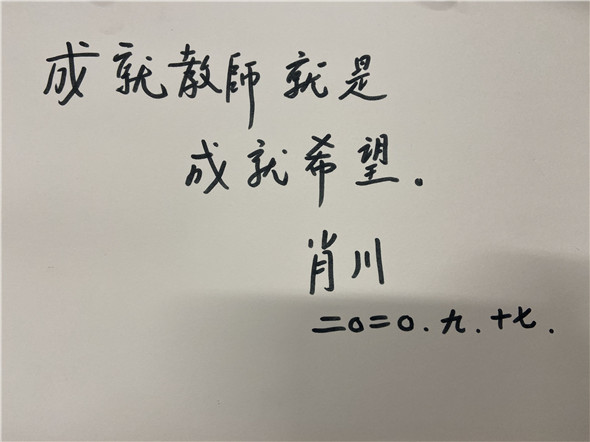 成就教師就是
成就希望.
肖川
二〇二〇.九.十七.